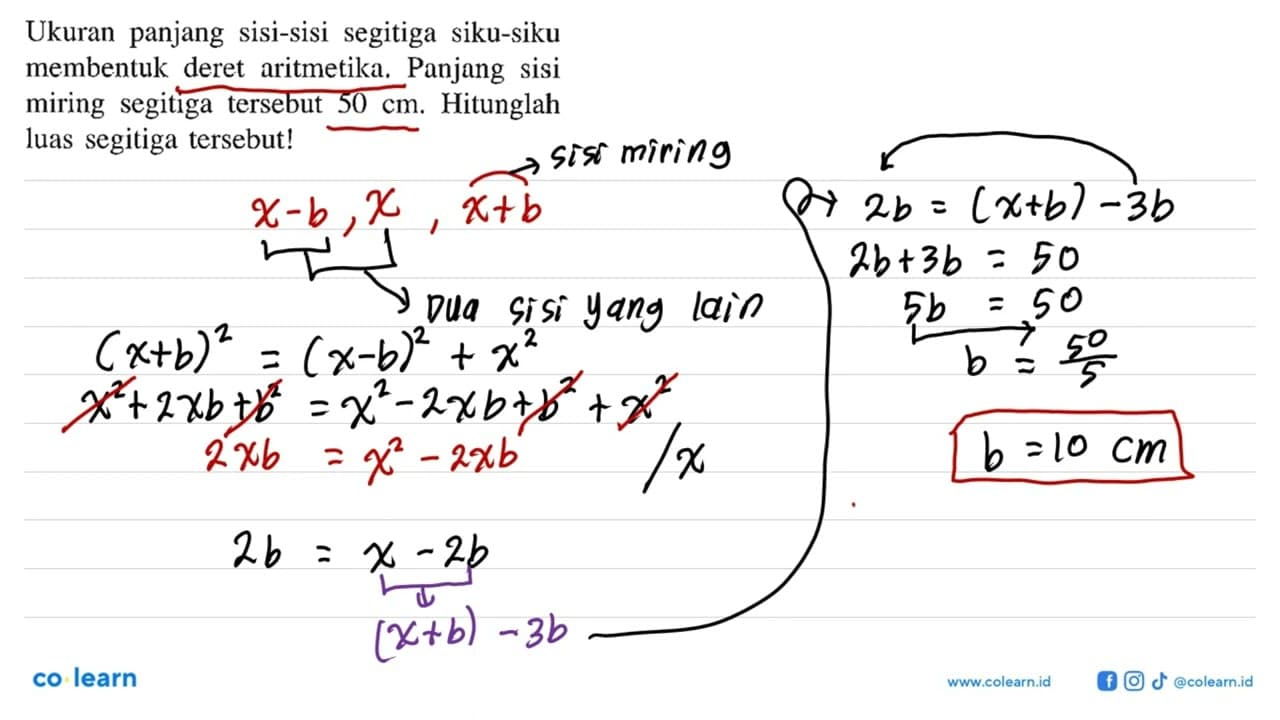 Ukuran panjang sisi-sisi segitiga siku-siku
membentuk deret aritmetika. Panjang sisi
miring segitiga tersebut 50 cm. Hitunglah
luas segitiga tersebut!
x-b, x, x+b
→ sisi miring
Dua sisi yang lain
(x+b)² = (x-b)² + x²
x²+2xb+b² = x²-2xb+b²+x²
2xb = x²-2xb /x
2b = x-2b
(x+b)-3b
2b = (x+b)-3b
2b+3b = 50
5b = 50
b = 50/5
b = 10 cm
co learn
www.colearn.id
@colearn.id